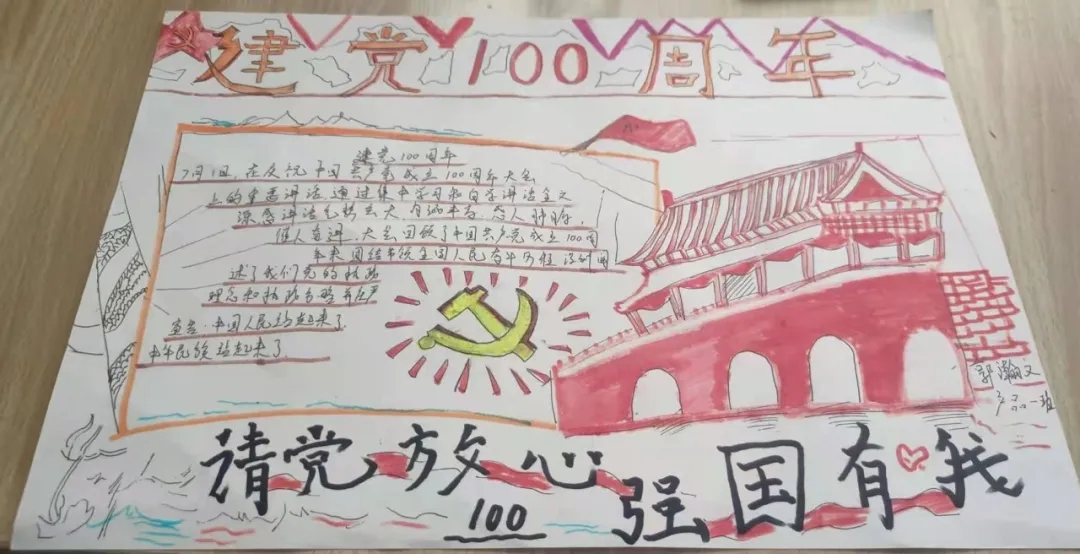 建党100周年
建党100周年
7月1日,在庆祝中国共产党成立100周年大会
上的重要讲话,通过集中学习和自学讲话全文
深感讲话气势宏大
催人奋进,大会回顾了中国共产党成立100周
年来团结带领全国人民
述了我们党的执政
理念和执政方略
宣告:中国人民站起来了
中华民族站起来了
请党放心
强国有我
100